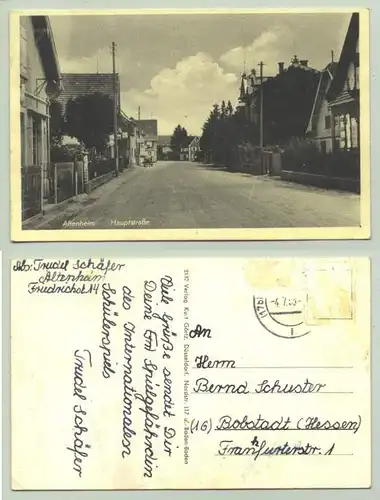 Altenheim Hauptstraße
Abs: Trudel Schäfer
Altenheim
Friedrichst. 14
Viele Grüße sendet Dir
Deine Spielgefährdin
des Internationalen
Schülerspiels
Trudel Schäfer
Verlag Karl Görtz, Düsseldorf, Nordstr. 117 u. Baden-Baden
An
Herrn
Bernd Schuster
(16) Bobstadt (Hessen)
Frankfurterstr. 1